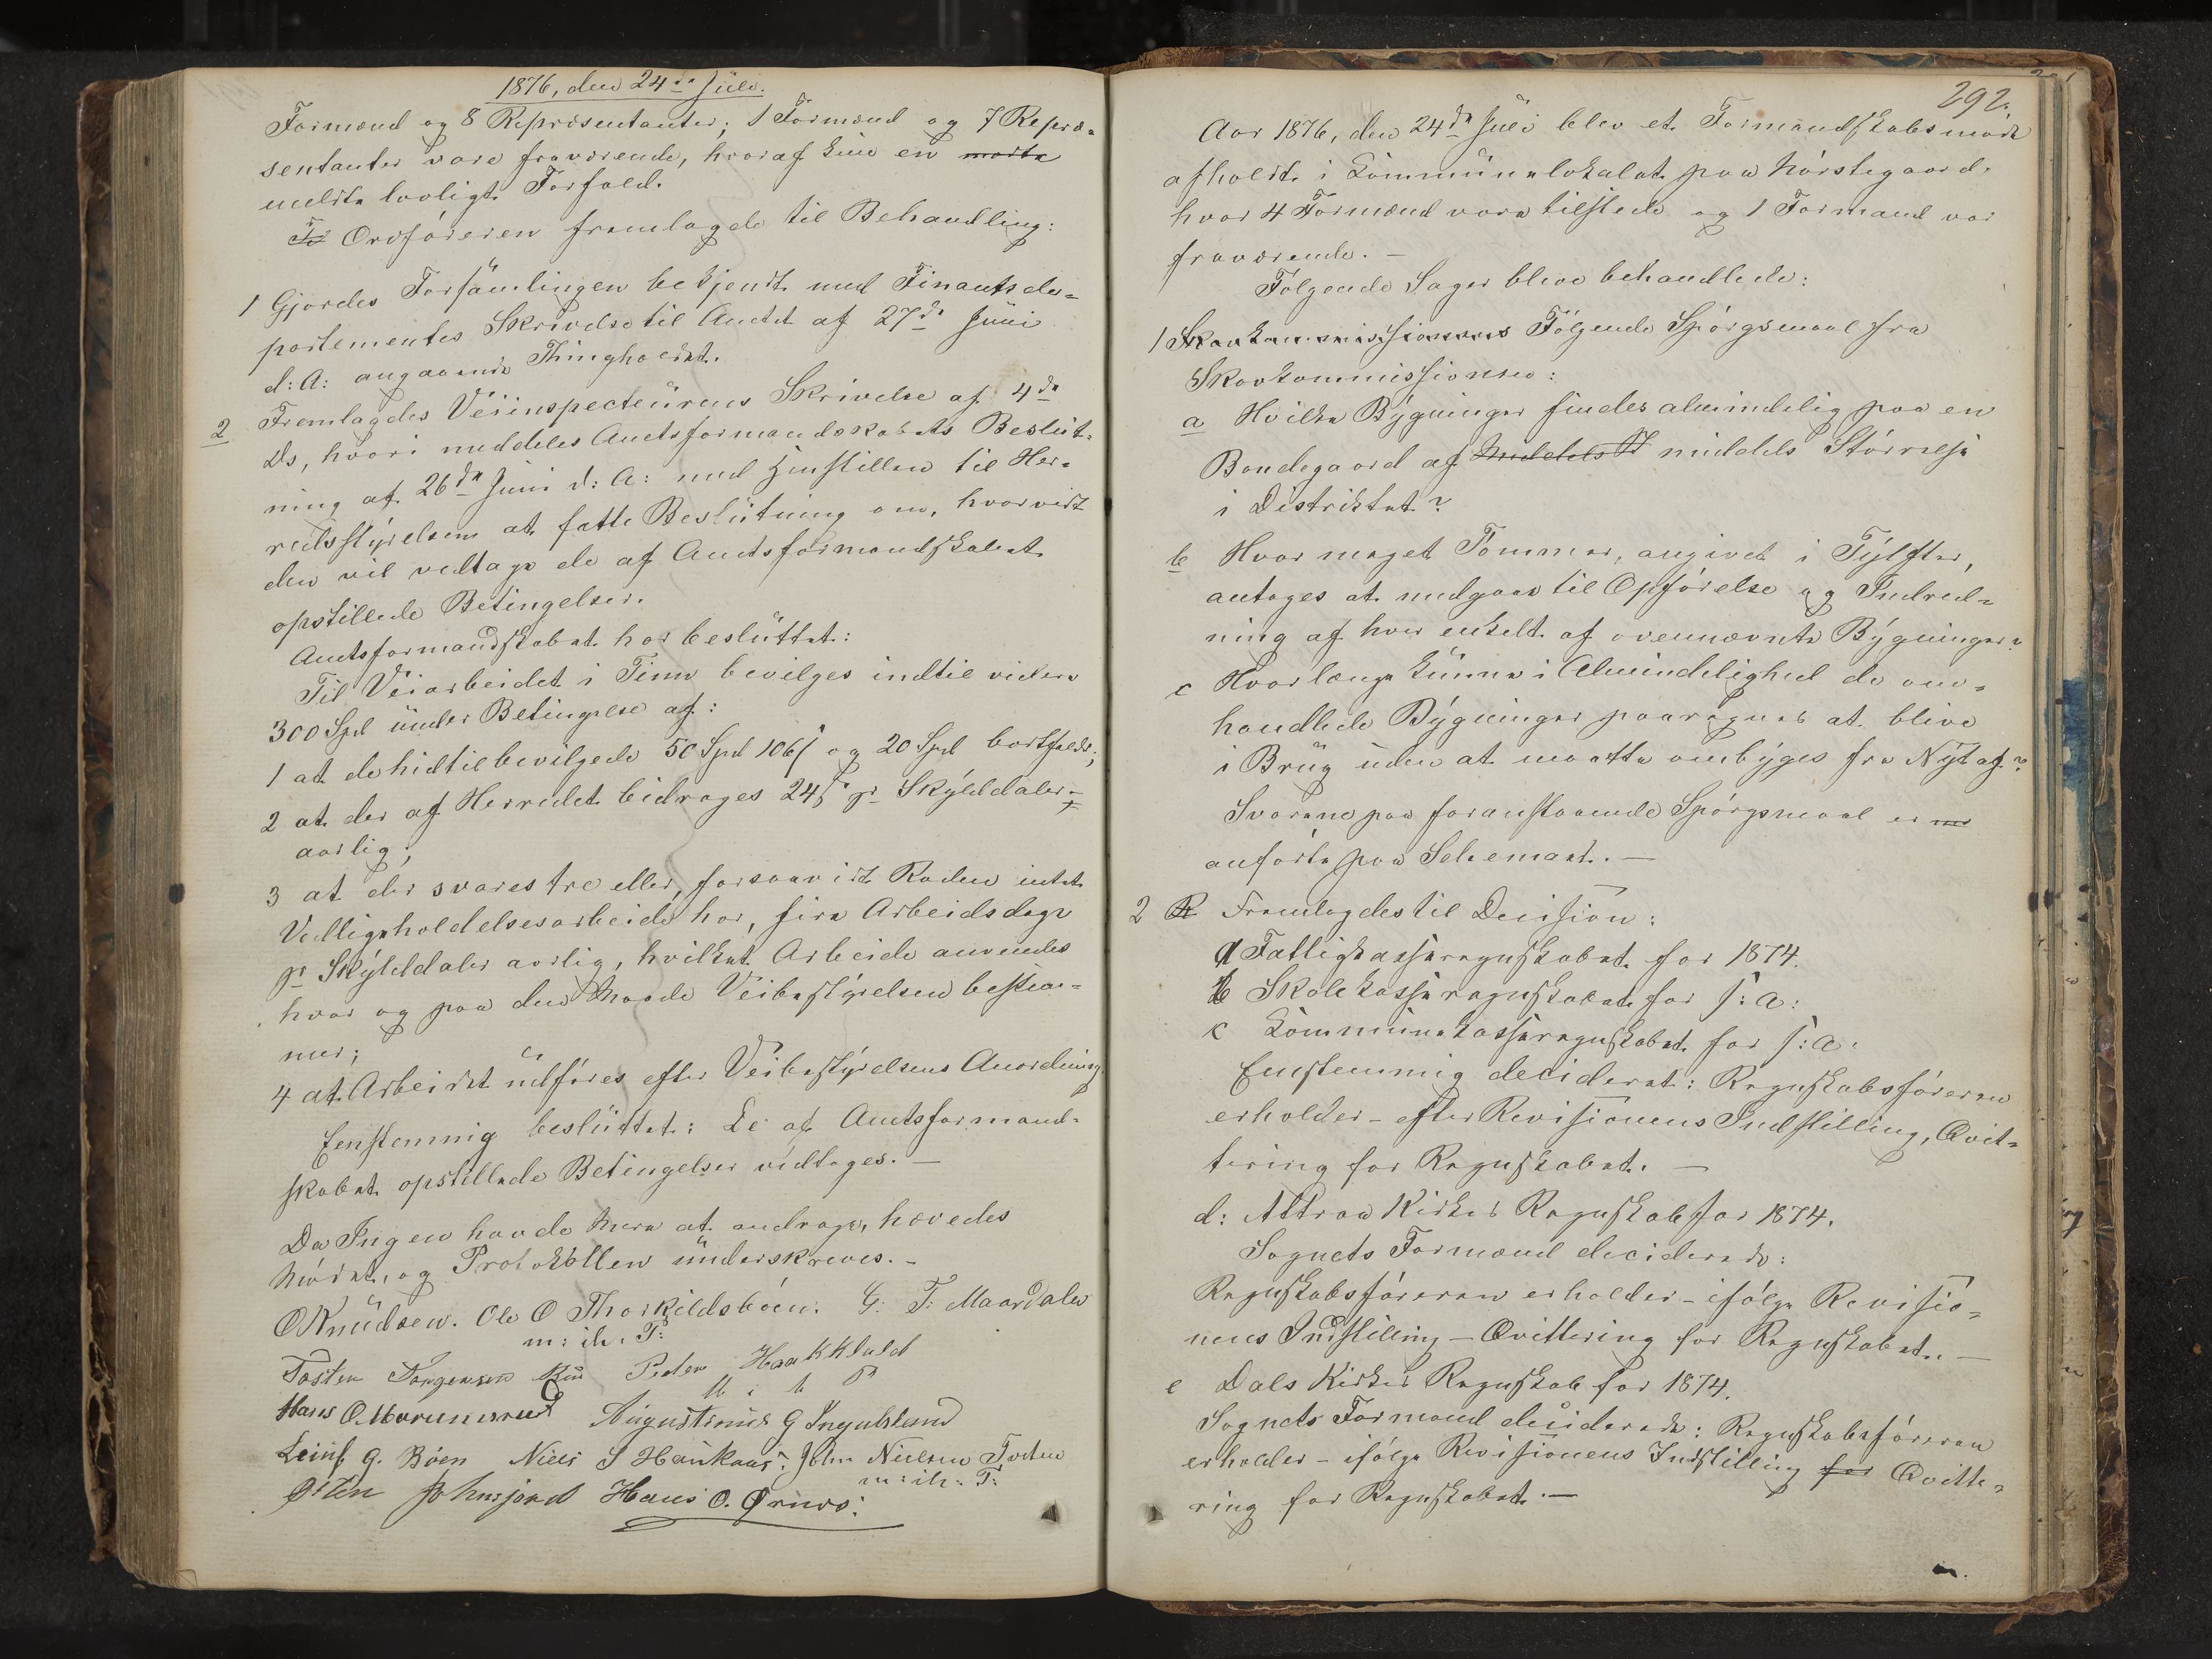 1876, den 24de Juli.
Formænd og 8 Repræsentanter; 1 Formænd og 7 Repræ-
sentanter vare fraværende, hvoraf kun en modte
meldte lovligt Forfald.
Ordføreren fremlagde til Behandling:
1 Gjordes Forsamlingen bekjendt med Finantsde-
partementets Skrivelse til Amtet af 27de Juni
d: A: angaaende Thingholdet.
2 Fremlagdes Veiinspecteurens Skrivelse af 4de
Ds, hvori meddeles Amtsformandskabets Beslut-
ning af 26de Juni d: A: med Henstillen til Her-
redsstyrelsen at fatte Beslutning om, hvorvidt
den vil vedtage de af Amtsformandskabet
opstillede Betingelser.
Amtsformandskabet har besluttet:
Til Veiarbeidet i Tinn bevilges indtil videre
300 Spd under Betingelse af:
1 at de hidtil bevilgede 50 Spd 106 ß og 20 Spd bortfalde;
2 at der af Herredet bidrages 24 ß pr Skylddaler
aarlig;
3 at der svares tre eller, forsaavidt Roden intet
Vedligeholdelsesarbeide har, fire Arbeidsdage
pr Skylddaler aarlig, hvilket Arbeide anvendes
hvor og paa den Maade Veibestyrelsen bestem-
mer;
4 at Arbeidet udføres efter Veibestyrelsens Anordning
Eenstemmig besluttet: De af Amtsformand-
skabet opstillede Betingelser vedtages. —
Da Ingen havde mere at andrage, hævedes
Mødet, og Protokollen underskreves. —
O Knudsen. Ole O Thorkildsbøen. G: T: Maardalen
m: ih: P:
Tosten Torgersen Peder Haakkluld
M i h P
Hans O. Marumsrud Augustinus G Ingulsland
Leinf G. Bøen Niels S Haukaas. John Nielsen
m: ih: P:
Østen Johnsjord Hans O. Ørnes:
292.
Aar 1876, den 24de Juli blev et Formandskabsmøde
afholdt i Kommunelokalet paa Hørstegaard,
hvor 4 Formænd vare tilstede og 1 Formand var
fraværende. —
Følgende Sager bleve behandlede:
1 Skovkommissionens Følgende Spørgsmaal fra
Skovkommissionen:
a Hvilke Bygninger findes almindelig paa en
Bondegaard af Middels St middels Størrelse
i Distriktet?
b Hvor meget Tømmer, angivet i Tylfter,
antages at medgaa til Opførelse og Indred-
ning af hver enkelt af ovennævnte Bygninger?
c Hvorlænge kunne i Almindelighed de om-
handlede Bygninger paaregnes at blive
i Brug uden at maatte ombyges fra Nyt af?
Svarene paa foranstaaende Spørgsmaal er
anførte paa Schemaet. —
2 Fremlagdes til Decision:
a Fattigkasseregnskabet for 1874.
b Skolekasseregnskabet for s: A:
c Kommunekasseregnskabet for s: A:
Eenstemmig decideret: Regnskabsføreren
erholder - efter Revisionens Indstilling, Qvit-
tering for Regnskabet. —
d: Attraa Kirkes Regnskab for 1874.
Sognets Formænd deciderede:
Regnskabsføreren erholder - ifølge Revisio-
nens Indstilling - Qvittering for Regnskabet. —
e Dals Kirkes Regnskab for 1874.
Sognets Formænd deciderede: Regnskabsføreren
erholder - ifølge Revisionens Indstilling for Qvitte-
ring for Regnskabet. —